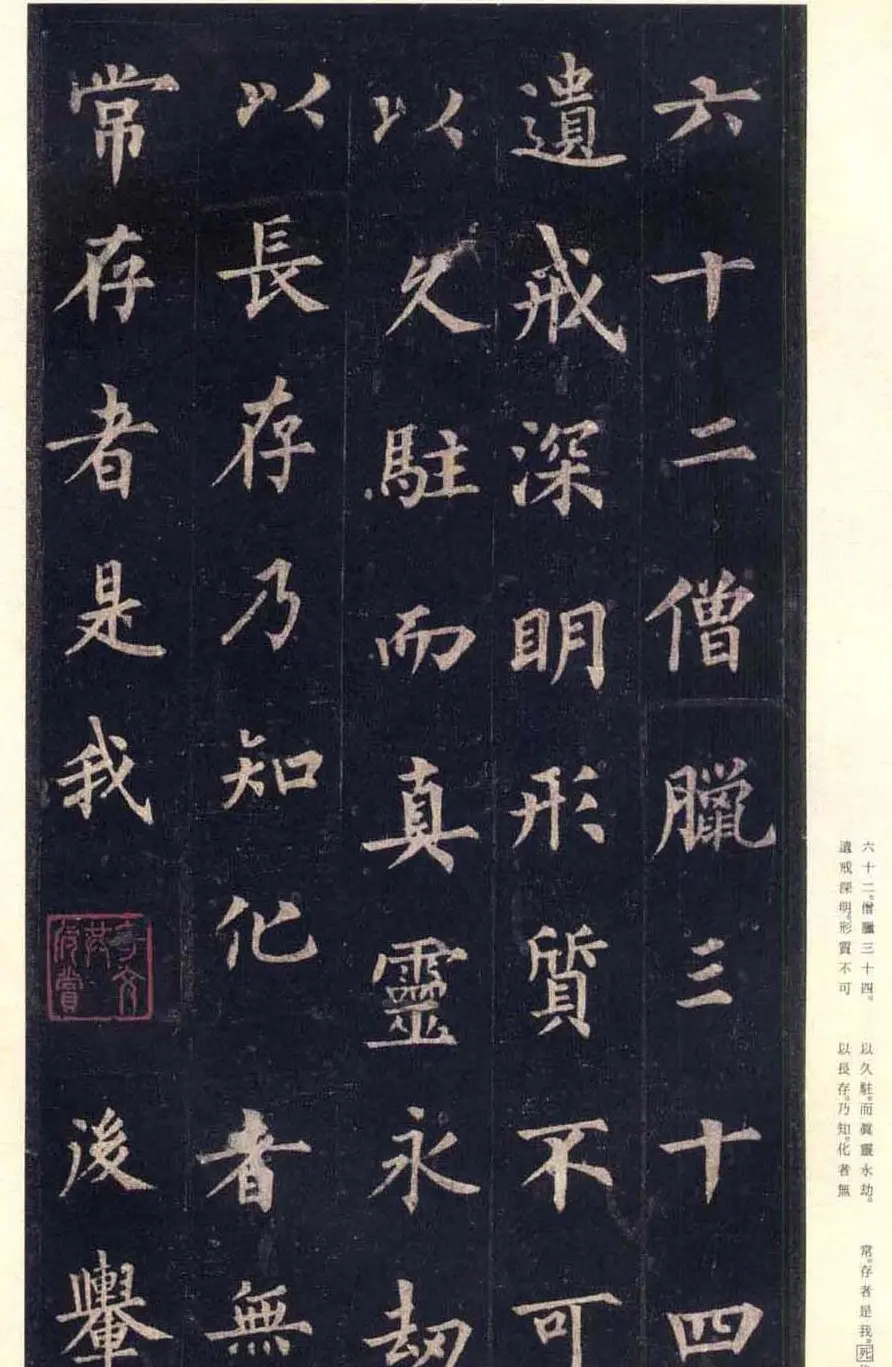 六十二僧臘三十四
遺戒深明形質不可
以久駐而真靈永劫
以長存乃知化者無
常存者是我後轝
六十二。僧臘三十四。
遺戒深明。形質不可
以久駐。而眞靈永劫。
以長存。乃知。化者無
常。存者是我。死